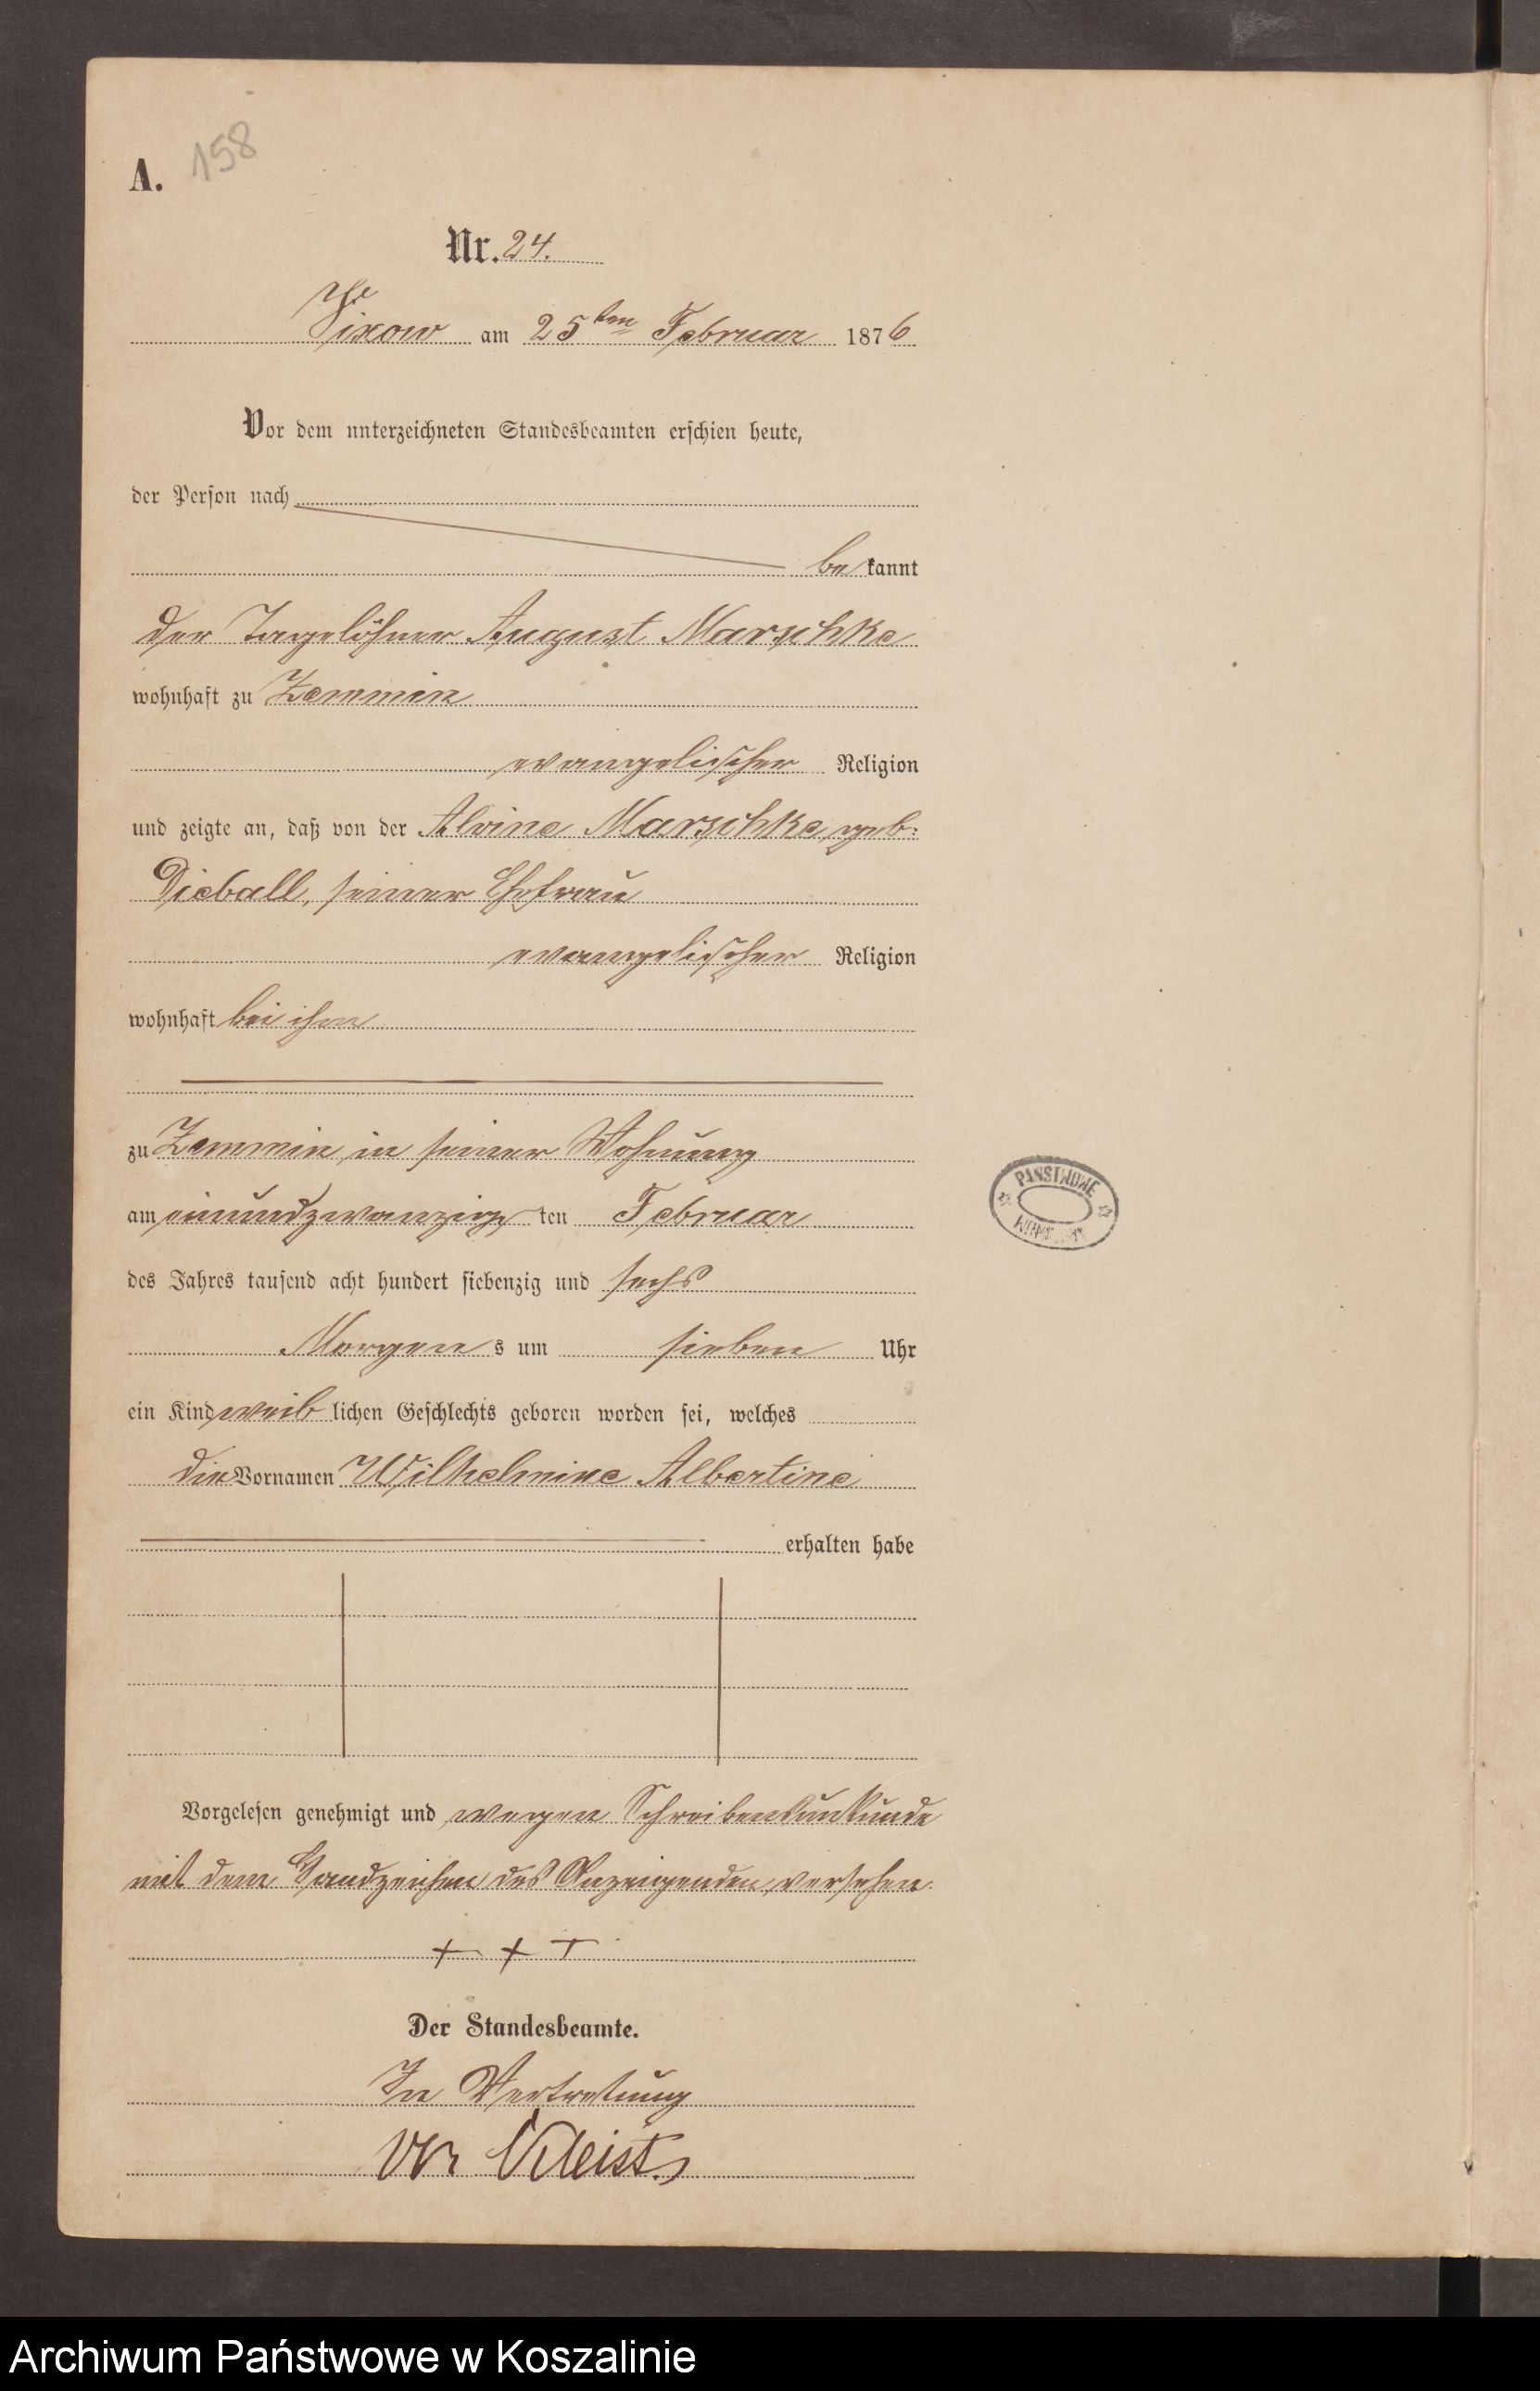 A. 158
Nr. 24.
Vixow am 25ten Februar 1876
Vor dem unterzeichneten Standesbeamten erschien heute,
der Person nach
be kannt
der Tagelöhner August Marschke
wohnhaft zu Zemmin
evangelischer Religion
und zeigte an, daß von der Alvine Marschke, geb:
Dieball, seiner Ehefrau
evangelischer Religion
wohnhaft bei ihm
zu Zemmin in seiner Wohnung
am einundzwanzig ten Februar
des Jahres tausend acht hundert siebenzig und sechs
Morgen s um sieben Uhr
ein Kind weib lichen Geschlechts geboren worden sei, welches
die Vornamen Wilhelmine Albertine
erhalten habe
PAŃSTWOWE
Vorgelesen genehmigt und wegen Schreibensunkunde
mit dem Handzeichen des Anzeigenden versehen.
+ + +
Der Standesbeamte.
In Vertretung
von Kleist
Archiwum Państwowe w Koszalinie